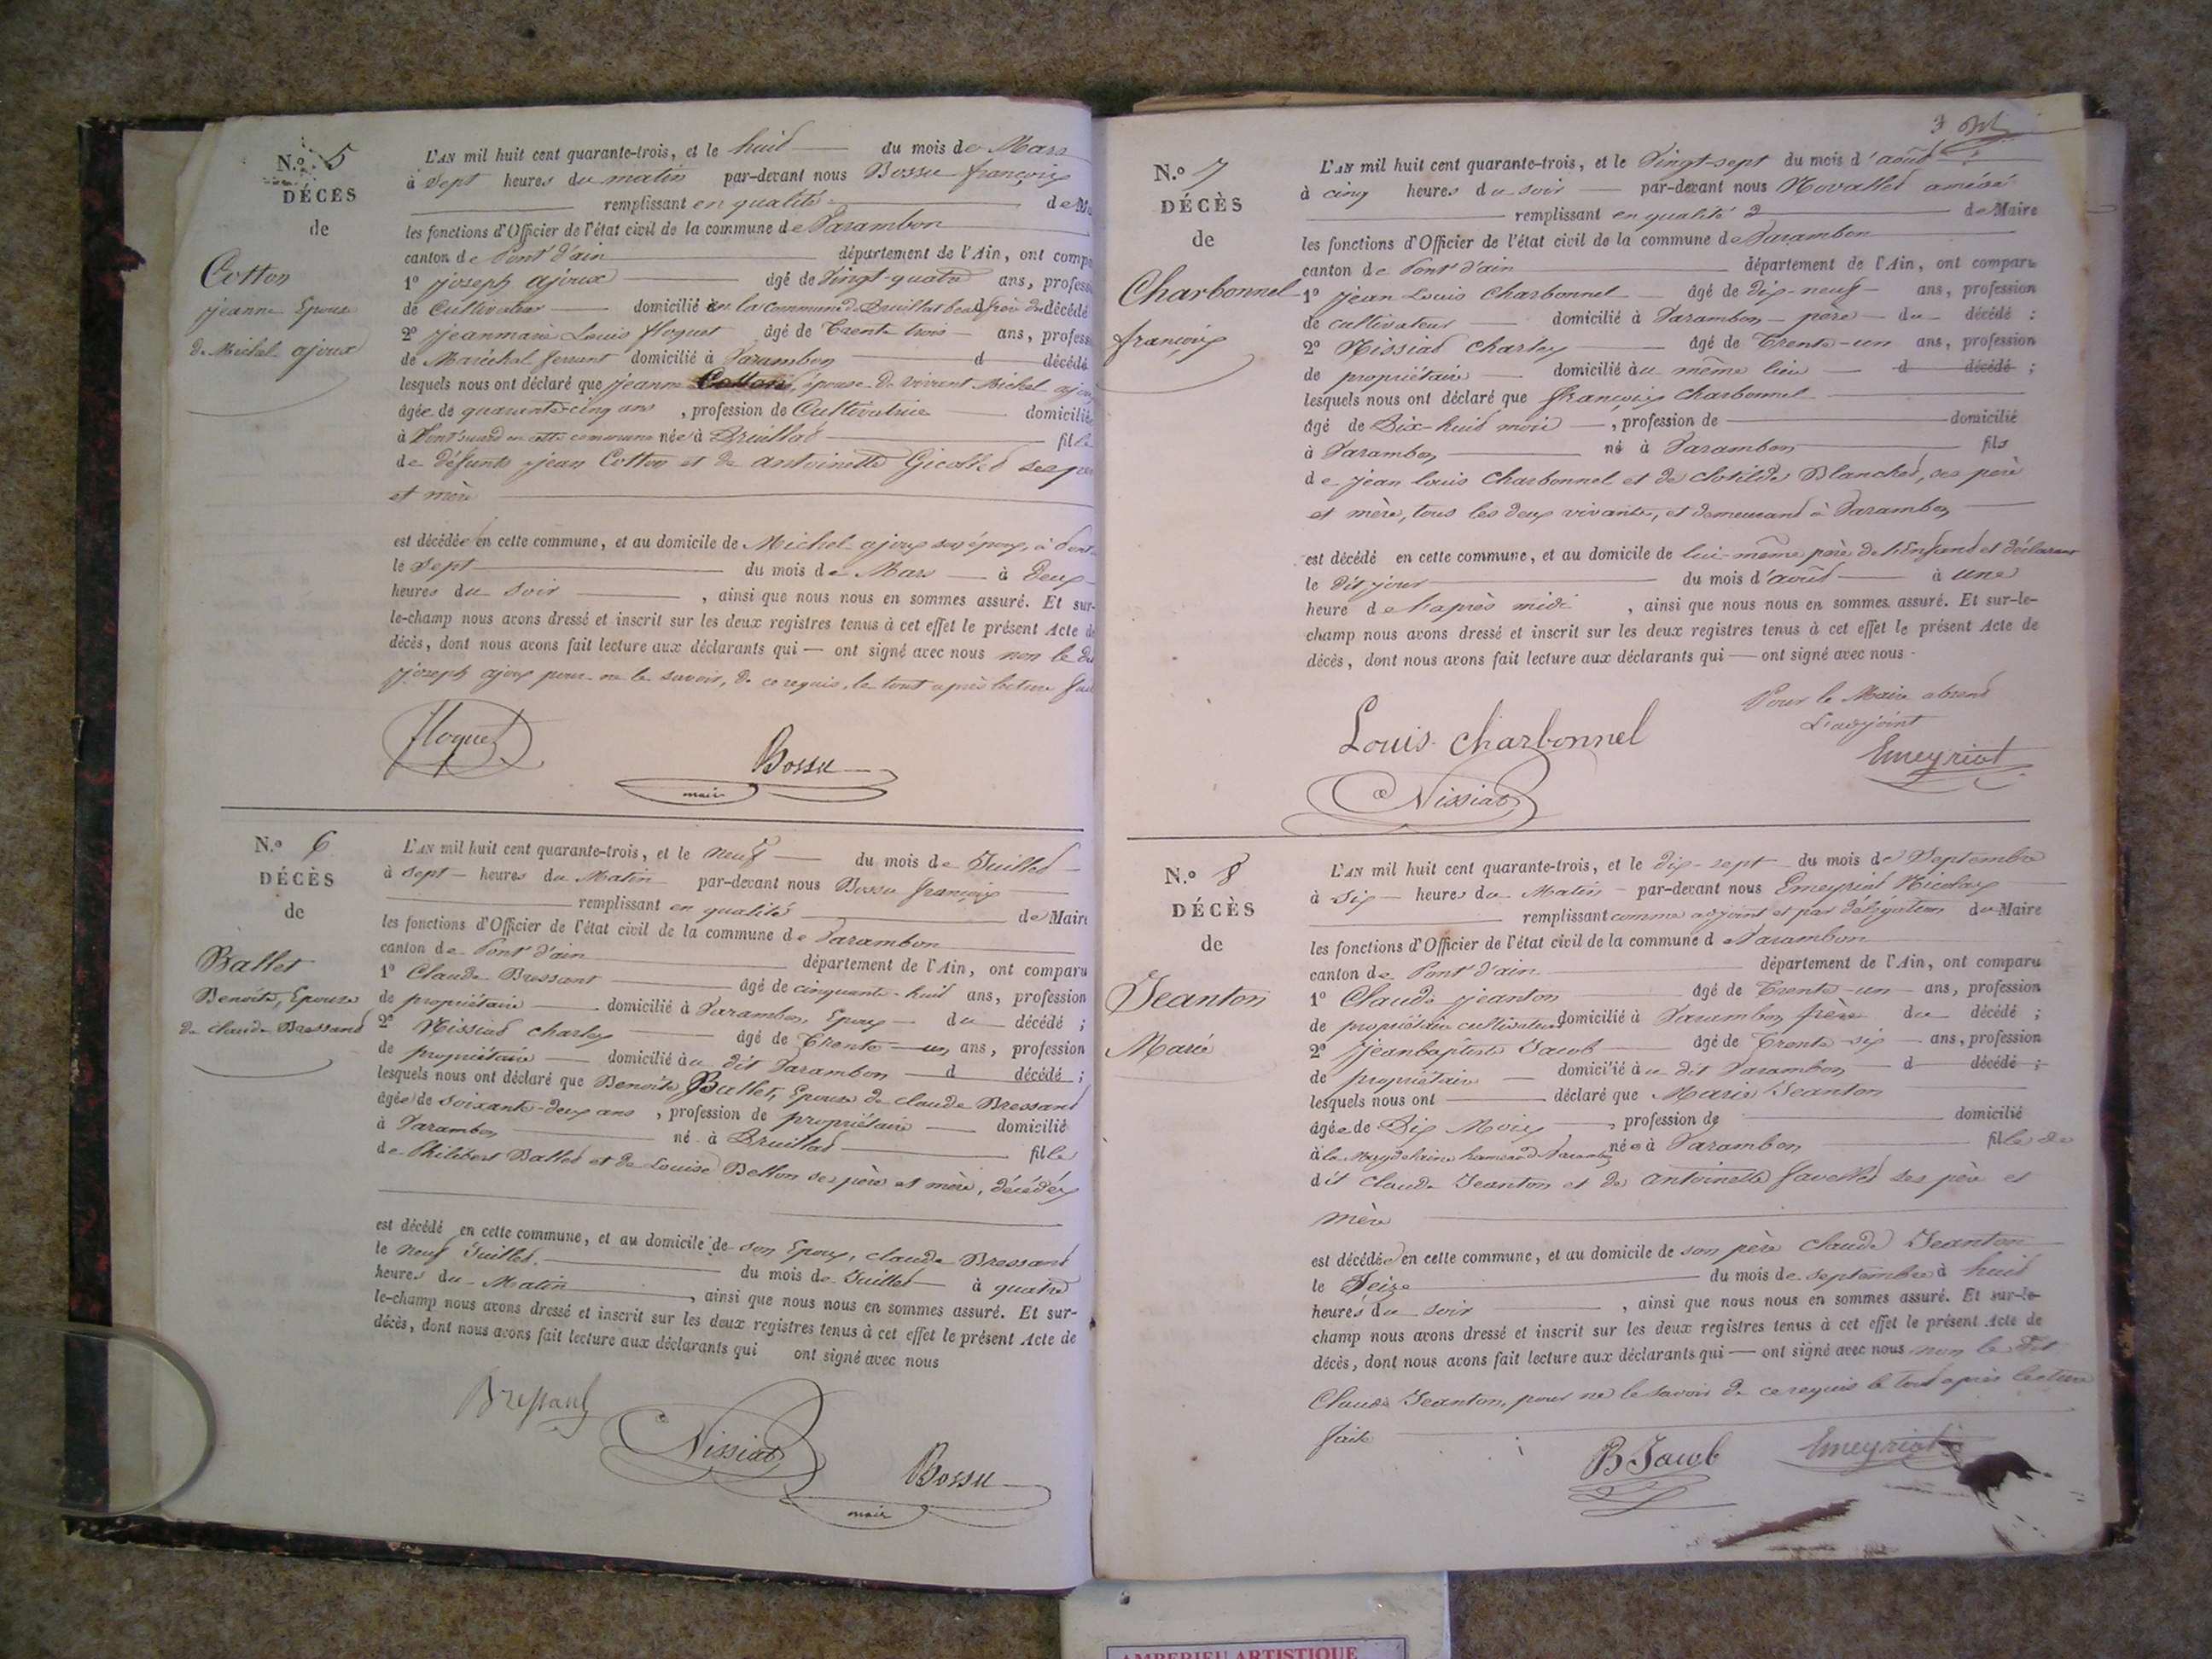 N.º 5
DÉCÈS
de
Cotton
jeanne Epouse
de Michel ajoux
L'AN mil huit cent quarante-trois, et le huit du mois de Mars
à sept heures du matin par-devant nous Bossu françois
remplissant en qualité de
les fonctions d'Officier de l'état civil de la commune de Varambon
canton de Pont d'ain département de l'Ain, ont comparu
1º joseph ajoux âgé de Vingt-quatre ans, profession
de Cultivateur domicilié en la commune de Druillat beau frère du décédé
2º jeanmarie Louis floquet âgé de Trente trois ans, profession
de Maréchal ferrant domicilié à Varambon d décédé
lesquels nous ont déclaré que jeanne Cotton, épouse de vivant Michel ajoux
âgée de quarante cinq ans, profession de Cultivatrice domiciliée
à en cette commune née à Druillat fille
de défunts jean Cotton et de antoinette Gicollet ses père
et mère
est décédée en cette commune, et au domicile de Michel ajoux son époux, à
le sept du mois de Mars à Deux
heures du soir, ainsi que nous nous en sommes assuré. Et sur-
le-champ nous avons dressé et inscrit sur les deux registres tenus à cet effet le présent Acte de
décès, dont nous avons fait lecture aux déclarants qui — ont signé avec nous non le dit
joseph ajoux pour ne le savoir, de ce requis, le tout après lecture faite
floquet
Bossu
maire
N.º 6
DÉCÈS
de
Ballet
Benoite, Epouse
de Claude Bressand
L'AN mil huit cent quarante-trois, et le neuf du mois de Juillet
à sept heures du Matin par-devant nous Bossu françois
remplissant en qualité de Maire
les fonctions d'Officier de l'état civil de la commune de Varambon
canton de Pont d'ain département de l'Ain, ont comparu
1º Claude Bressant âgé de cinquante-huit ans, profession
de propriétaire domicilié à Varambon, Epoux du décédé ;
2º Nissiat charles âgé de Trente-un ans, profession
de propriétaire domicilié au dit Varambon d décédé ;
lesquels nous ont déclaré que Benoite Ballet, Epouse de claude Bressand
âgée de soixante-deux ans, profession de propriétaire domicilié
à Varambon né à Druillat fille
de Philibert Ballet et de Louise Bellon ses père et mère, décédés
est décédé en cette commune, et au domicile de son Epoux, claude Bressand
le neuf Juillet du mois de Juillet à quatre
heures du Matin, ainsi que nous nous en sommes assuré. Et sur-
le-champ nous avons dressé et inscrit sur les deux registres tenus à cet effet le présent Acte de
décès, dont nous avons fait lecture aux déclarants qui ont signé avec nous
Bressand
Nissiat
Bossu
maire
3
N.º 7
DÉCÈS
de
Charbonnel
françois
L'AN mil huit cent quarante-trois, et le Vingt-sept du mois d'août
à cinq heures du soir par-devant nous
remplissant en qualité d de Maire
les fonctions d'Officier de l'état civil de la commune de Varambon
canton de Pont d'ain département de l'Ain, ont comparu
1º jean Louis Charbonnel âgé de dix-neuf ans, profession
de cultivateur domicilié à Varambon père du décédé ;
2º Nissiat Charles âgé de Trente-un ans, profession
de propriétaire domicilié au même lieu d décédé ;
lesquels nous ont déclaré que françois Charbonnel
âgé de Dix-huit mois, profession de domicilié
à Varambon né à Varambon fils
de jean louis Charbonnel et de clotilde Blanchet, ses père
et mère, tous les deux vivants, et demeurant à Varambon
est décédé en cette commune, et au domicile de lui-même père de l'Enfant et déclarant
le dit jour du mois d'août à une
heure de l'après midi, ainsi que nous nous en sommes assuré. Et sur-le-
champ nous avons dressé et inscrit sur les deux registres tenus à cet effet le présent Acte de
décès, dont nous avons fait lecture aux déclarants qui — ont signé avec nous
Pour le Maire absent
L'adjoint
Louis Charbonnel
Emeyriat
Nissiat
N.º 8
DÉCÈS
de
Jeanton
Marie
L'AN mil huit cent quarante-trois, et le dix-sept du mois de Septembre
à six heures du Matin par-devant nous Emeyriat Nicolas
remplissant comme adjoint et par délégation du Maire
les fonctions d'Officier de l'état civil de la commune d Varambon
canton de Pont d'ain département de l'Ain, ont comparu
1º Claude jeanton âgé de Trente-un ans, profession
de propriétaire cultivateur domicilié à Varambon père du décédé ;
2º jeanbaptiste Jacob âgé de Trente-six ans, profession
de propriétaire domicilié au dit Varambon d décédé ;
lesquels nous ont déclaré que Marie Jeanton
âgée de Dix Mois, profession de domicilié
à la Magdeleine hameau de Varambon née à Varambon fille de
dit Claude Jeanton et de antoinette favellet ses père et
mère
est décédée en cette commune, et au domicile de son père claude Jeanton
le Seize du mois de septembre à huit
heures du soir, ainsi que nous nous en sommes assuré. Et sur-le-
champ nous avons dressé et inscrit sur les deux registres tenus à cet effet le présent Acte de
décès, dont nous avons fait lecture aux déclarants qui — ont signé avec nous non le dit
Claude Jeanton, pour ne le savoir de ce requis le tout après lecture
faite
B Jacob
Emeyriat
AMBERIEU ARTISTIQUE